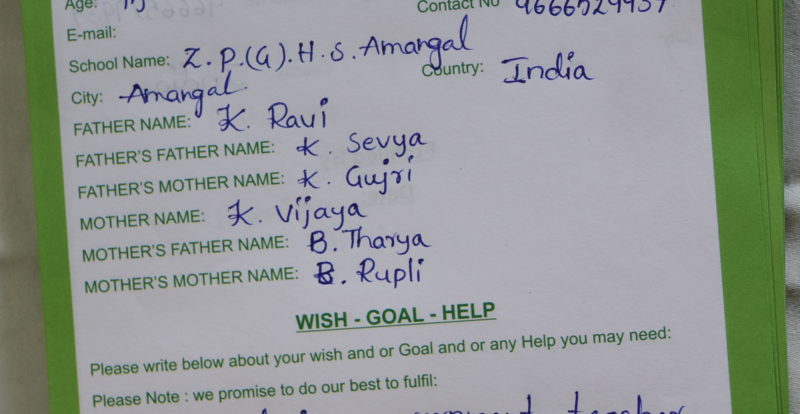 Age: 15
Contact No 9666529937
E-mail:
School Name: Z.P.(G).H.S. Amangal
City: Amangal. Country: India
FATHER NAME: K. Ravi
FATHER'S FATHER NAME: K. Sevya
FATHER'S MOTHER NAME: K. Gujri
MOTHER NAME: K. Vijaya
MOTHER'S FATHER NAME: B. Tharya
MOTHER'S MOTHER NAME: B. Rupli
WISH - GOAL - HELP
Please write below about your wish and or Goal and or any Help you may need:
Please Note : we promise to do our best to fulfil:
teacher